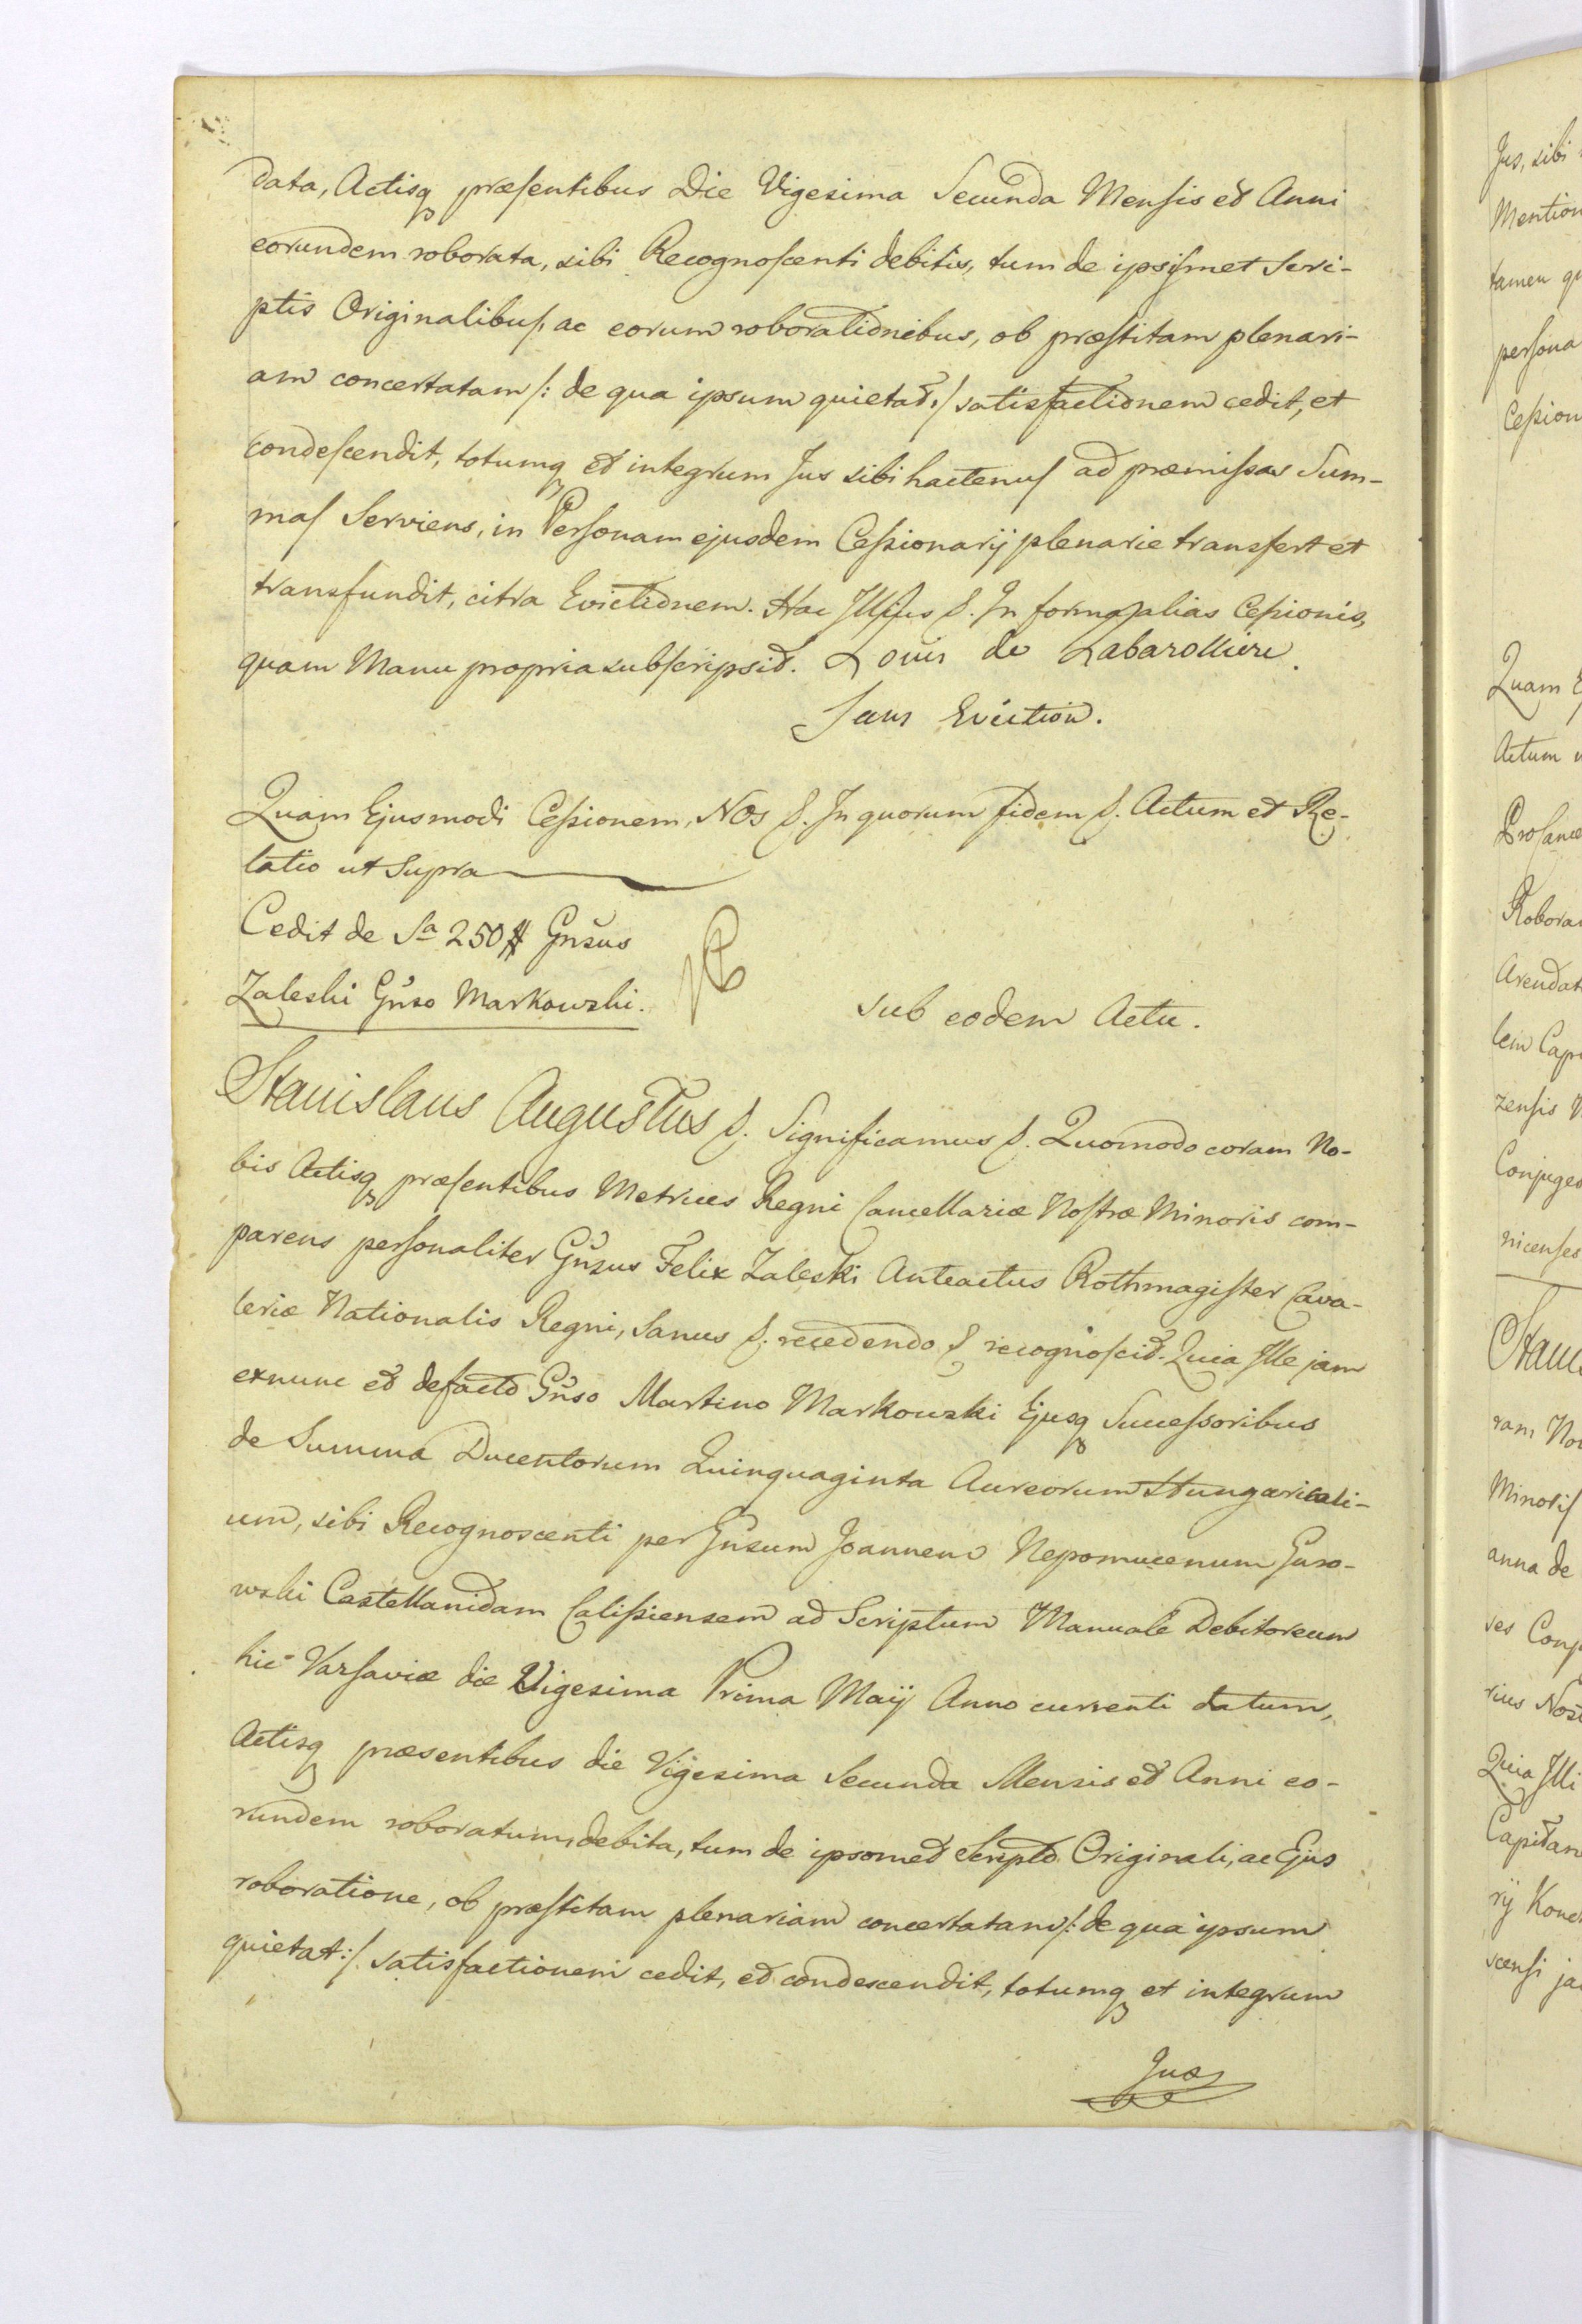 data, Actisq præsentibus Die Vigesima Secunda Mensis et Anni
eorundem roborata, sibi Recognoscenti debitis, tum de ipsismet Scri-
ptis Originalibus, ac eorum roborationibus, ob præstitam plenari-
am concertatam /: de qua ipsum quietat :/ satisfactionem cedit, et
condescendit, totumq et integrum Jus sibi hactenus ad præmissas Sum-
mas Serviens, in Personam ejusdem Cessionarij plenarie transfert et
transfundit, citra Evictionem. Hac Illius S. In forma alias Cessionis,
quam Manu propria subscripsit. Louis de Labarolliere.
Sans Eviction.
Quam Ejusmodi Cessionem, Nos S. In quorum fidem S. Actum et Re-
latio ut Supra
Cedit de Sa 250 # Gnsus
Zaleski Gnso Markowski.
sub eodem Actu.
Stanislaus Augustus S. Significamus S. Quomodo coram No-
bis Actisq præsentibus Metrices Regni Cancellariæ Nostræ Minoris com-
parens personaliter Gnsus Felix Zaleski Anteactus Rothmagister Cava-
leriæ Nationalis Regni, Sanus S. recedendo S recognoscit. Quia Ille jam
exnunc et defacto Gnso Martino Markowski Ejusq Successoribus
de Summa Ducentorum Quinquaginta Aureorum Hungaricali-
um, sibi Recognoscenti per Gnsum Joannem Nepomucenum Guro-
wski Castellanidam Calissiensem ad Scriptum Manuale Debitoreum
hic Varsaviæ die Vigesima Prima Maij Anno currenti datum,
Actisq præsentibus die Vigesima Secunda Mensis et Anni eo-
rundem roboratum, debita, tum de ipsomet Scripto Originali, ac Ejus
roboratione, ob præstitam plenariam concertatam /: de qua ipsum
quietat :/ satisfactionem cedit, et condescendit, totumq et integrum
Jus
Jus, sibi
Mention
tamen
persona
Cession
Quam
Actum
Arendat
zensis
Conjuges
nicenses
ram
Minoris
anna de
res
rius
Quia Illi
Capitan
rij